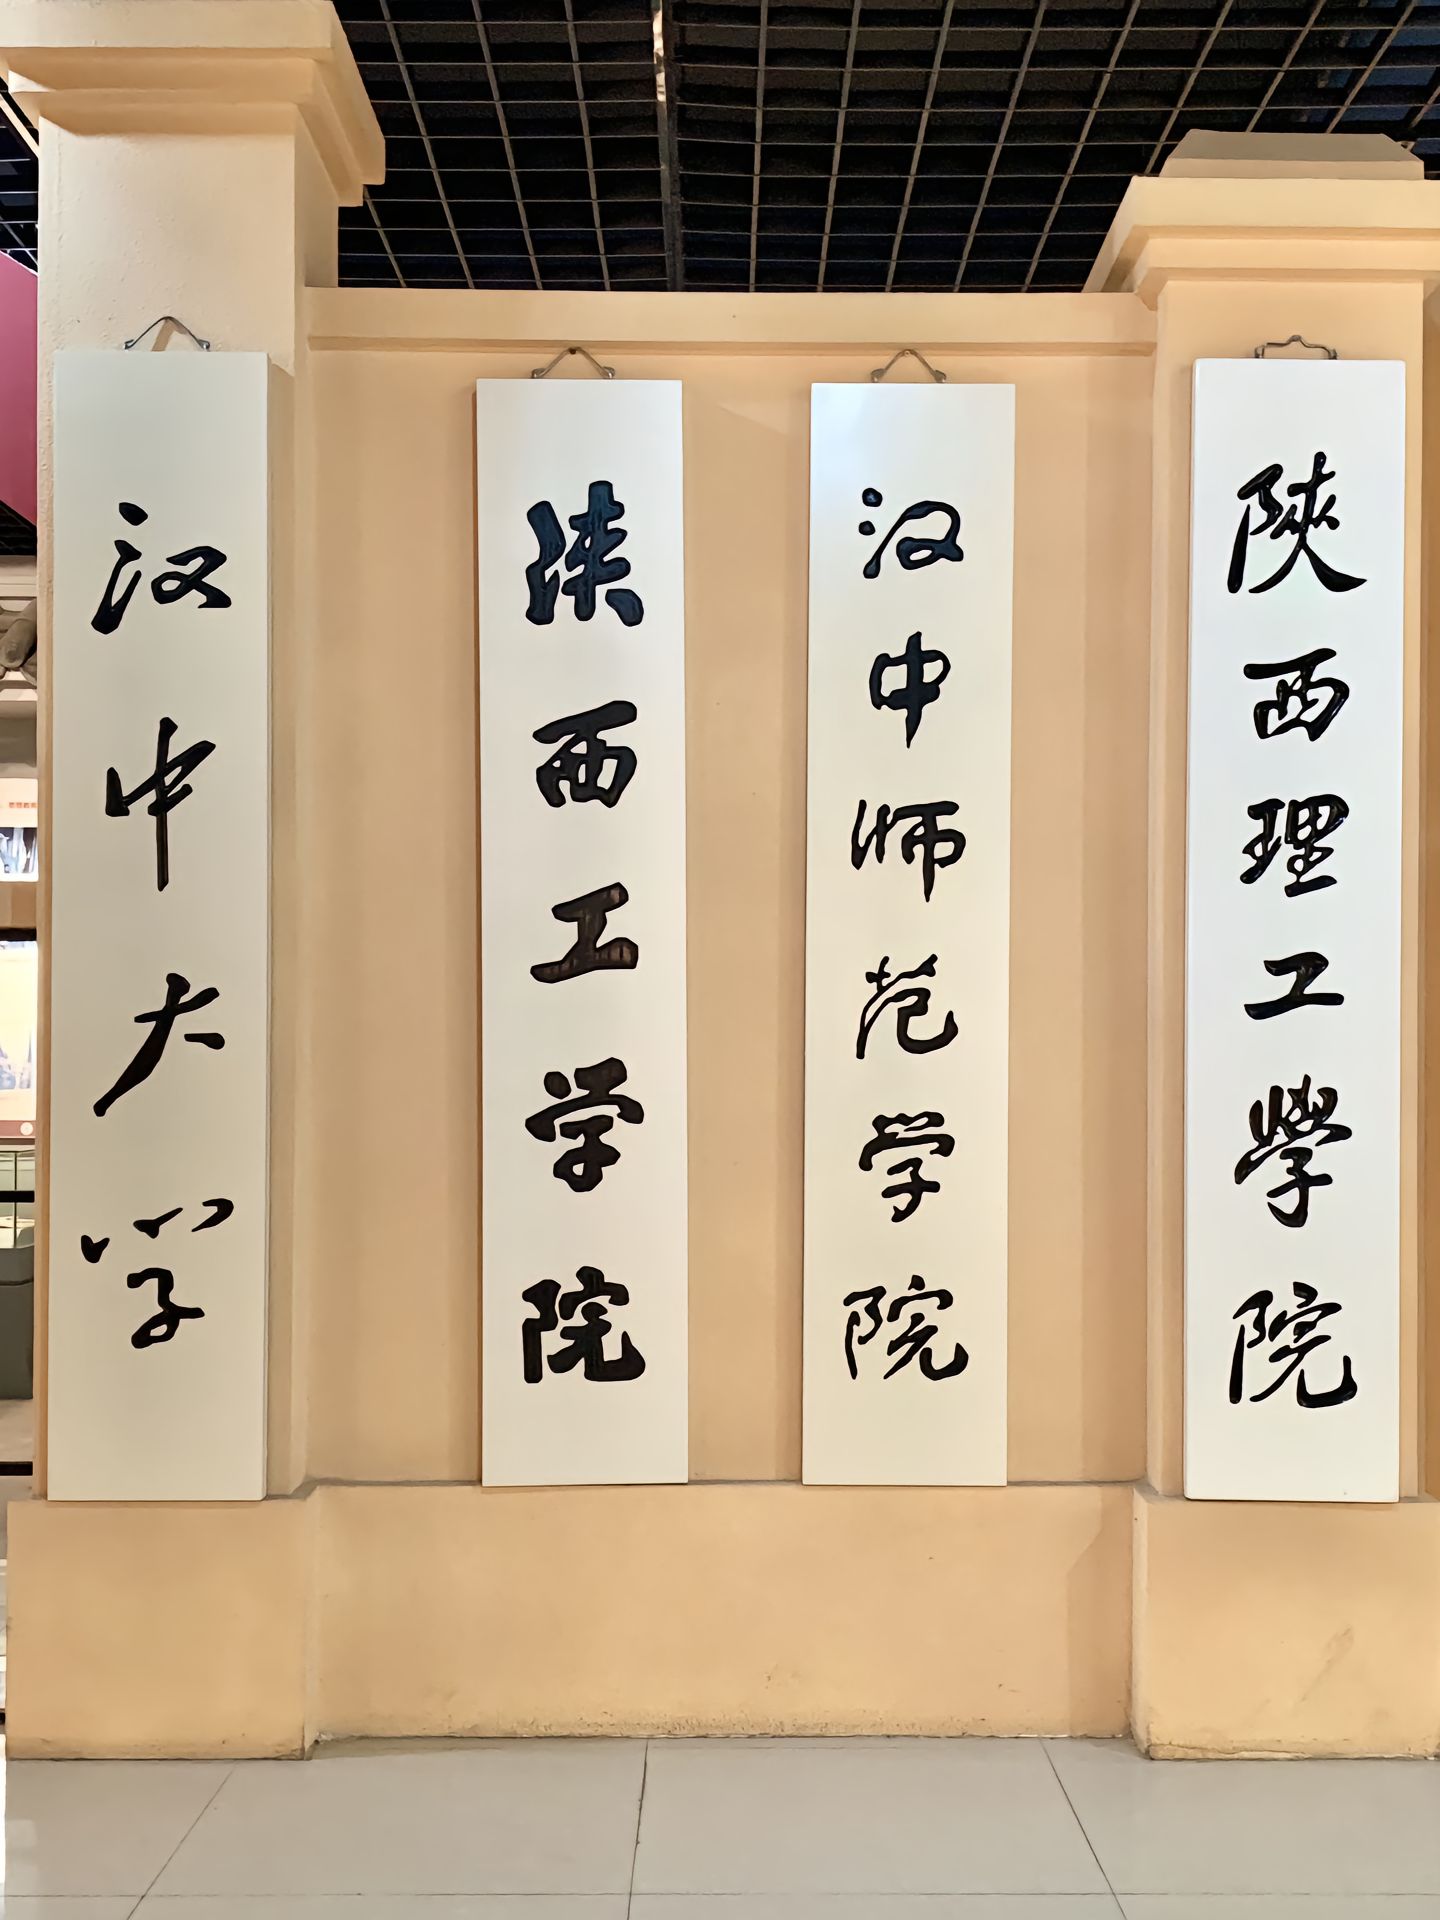 汉中大学
陕西工学院
汉中师范学院
陝西理工學院